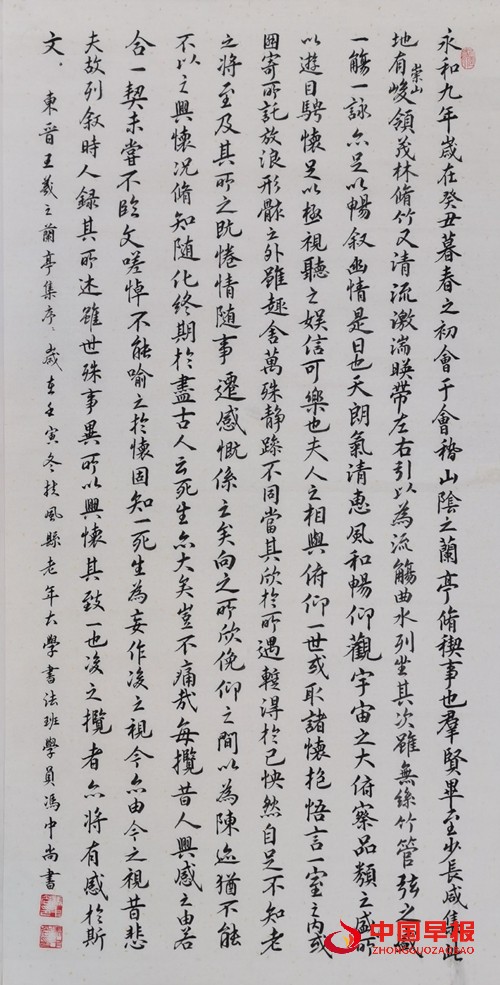 永和九年歲在癸丑暮春之初會于會稽山陰之蘭亭脩稧事也羣賢畢至少長咸集此
地有崇山峻領茂林脩竹又清流激湍暎帶左右引以為流觴曲水列坐其次雖無絲竹管弦之盛
一觴一詠亦足以暢叙幽情是日也天朗氣清惠風和暢仰觀宇宙之大俯察品類之盛所
以遊目騁懷足以極視聽之娛信可樂也夫人之相與俯仰一世或取諸懷抱悟言一室之內或
因寄所託放浪形骸之外雖趣舍萬殊静躁不同當其欣於所遇蹔得於己怏然自足不知老
之將至及其所之既惓情随事遷感慨係之矣向之所欣俛仰之間以為陳迹猶不能
不以之興懷况脩知随化終期於盡古人云死生亦大矣豈不痛哉每攬昔人興感之由若
合一契未嘗不臨文嗟悼不能喻之於懷固知一死生為妄作後之視今亦由今之視昔悲
夫故列叙時人録其所述雖世殊事異所以興懷其致一也後之攬者亦將有感於斯
文．東晉王羲之蘭亭集序．歲在壬寅冬扶風縣老年大學書法班學員馮中尚書
中国早报
ZHONGGUOZAOBAO